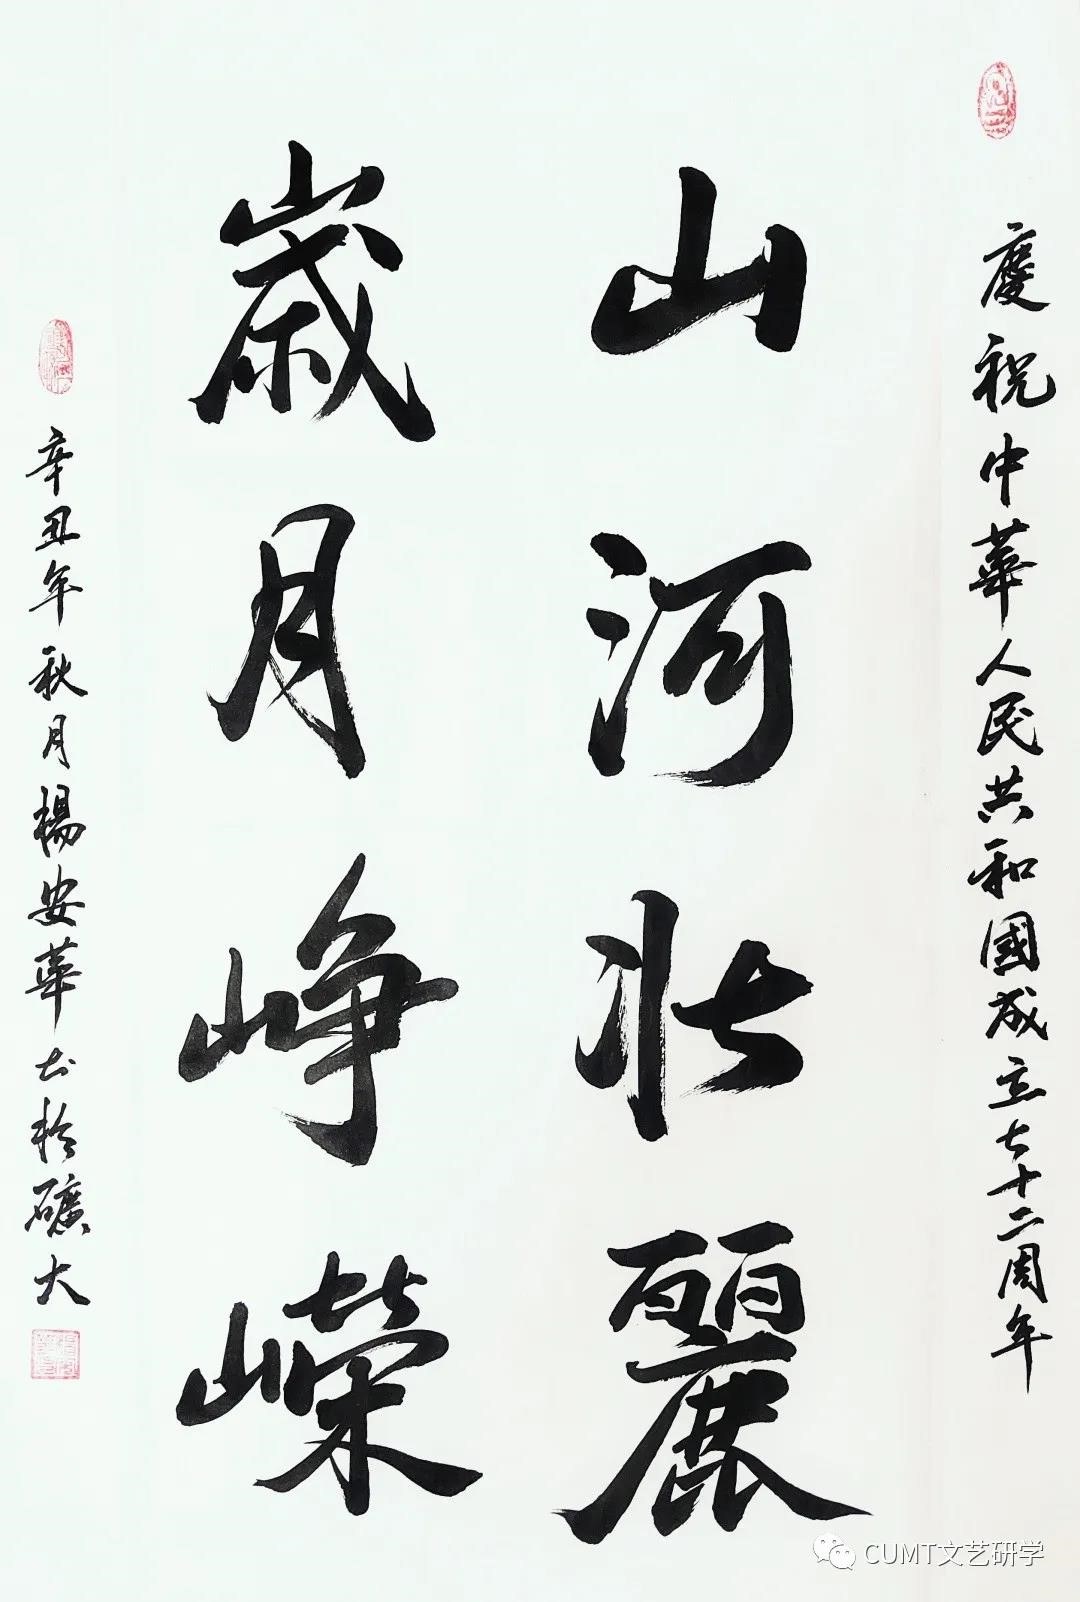 慶祝中華人民共和國成立七十二周年
山河壯麗
歲月崢嶸
辛丑年秋月楊安華书於礦大
CUMT文艺研学